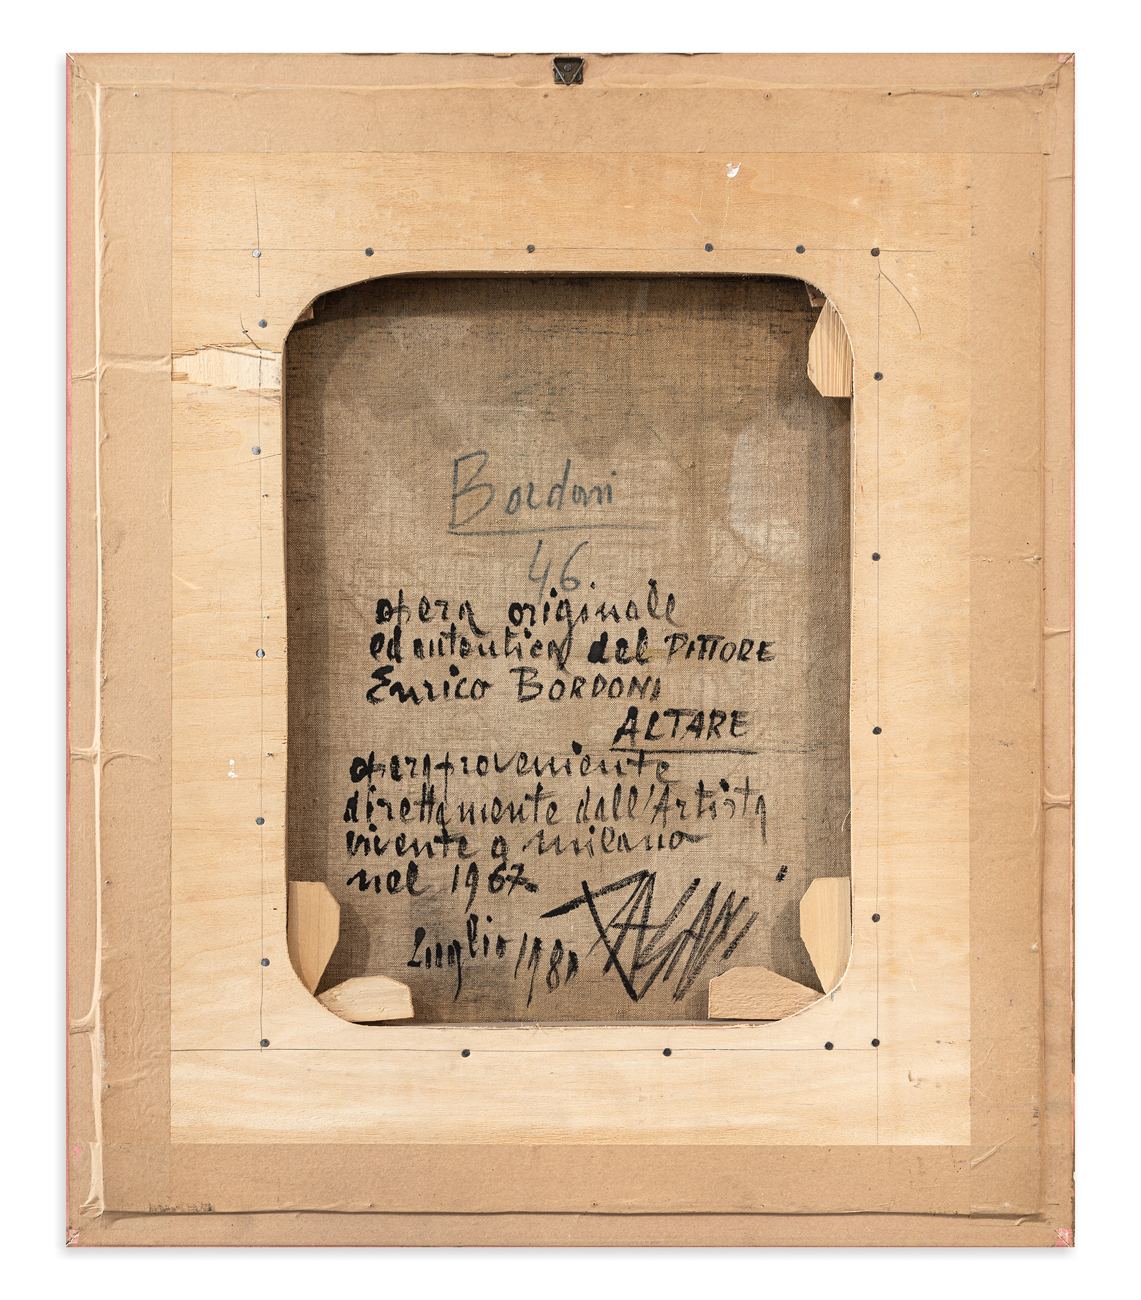 Bordoni
46
opera originale
ed autentica del PITTORE
Enrico BORDONI
ALTARE
opera proveniente
direttamente dall'Artista
vivente a milano
nel 1967
Luglio 1980